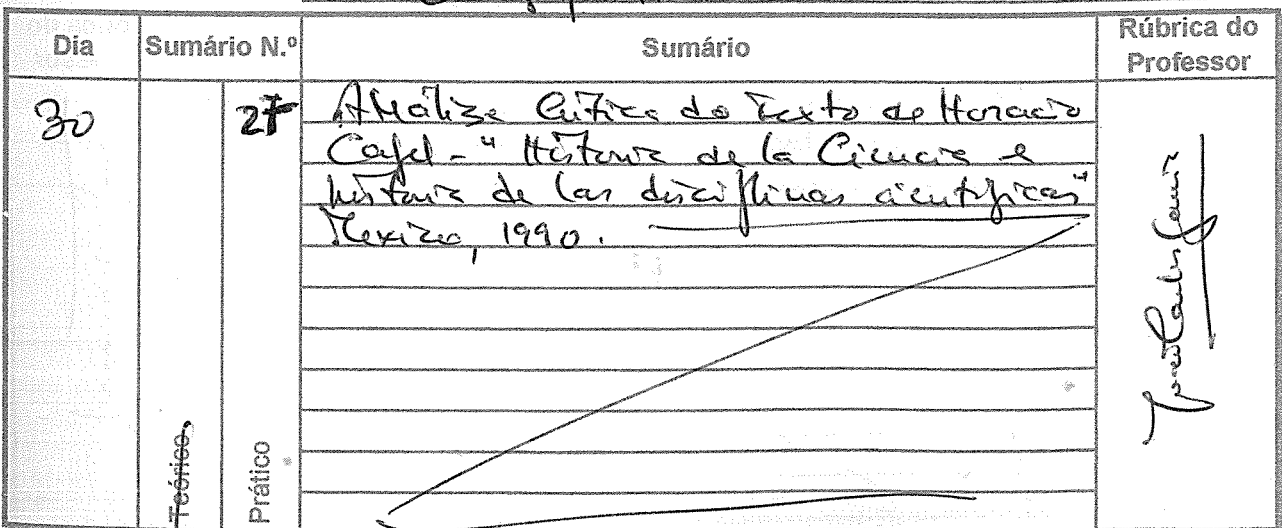 Dia Sumário N.º Sumário Rúbrica do Professor
30 27 Análise Crítica do Texto de Horacio
Capel - "Historia de la Ciencia e
historia de las disciplinas científicas"
Mexico, 1990.
Teórico,
Prático